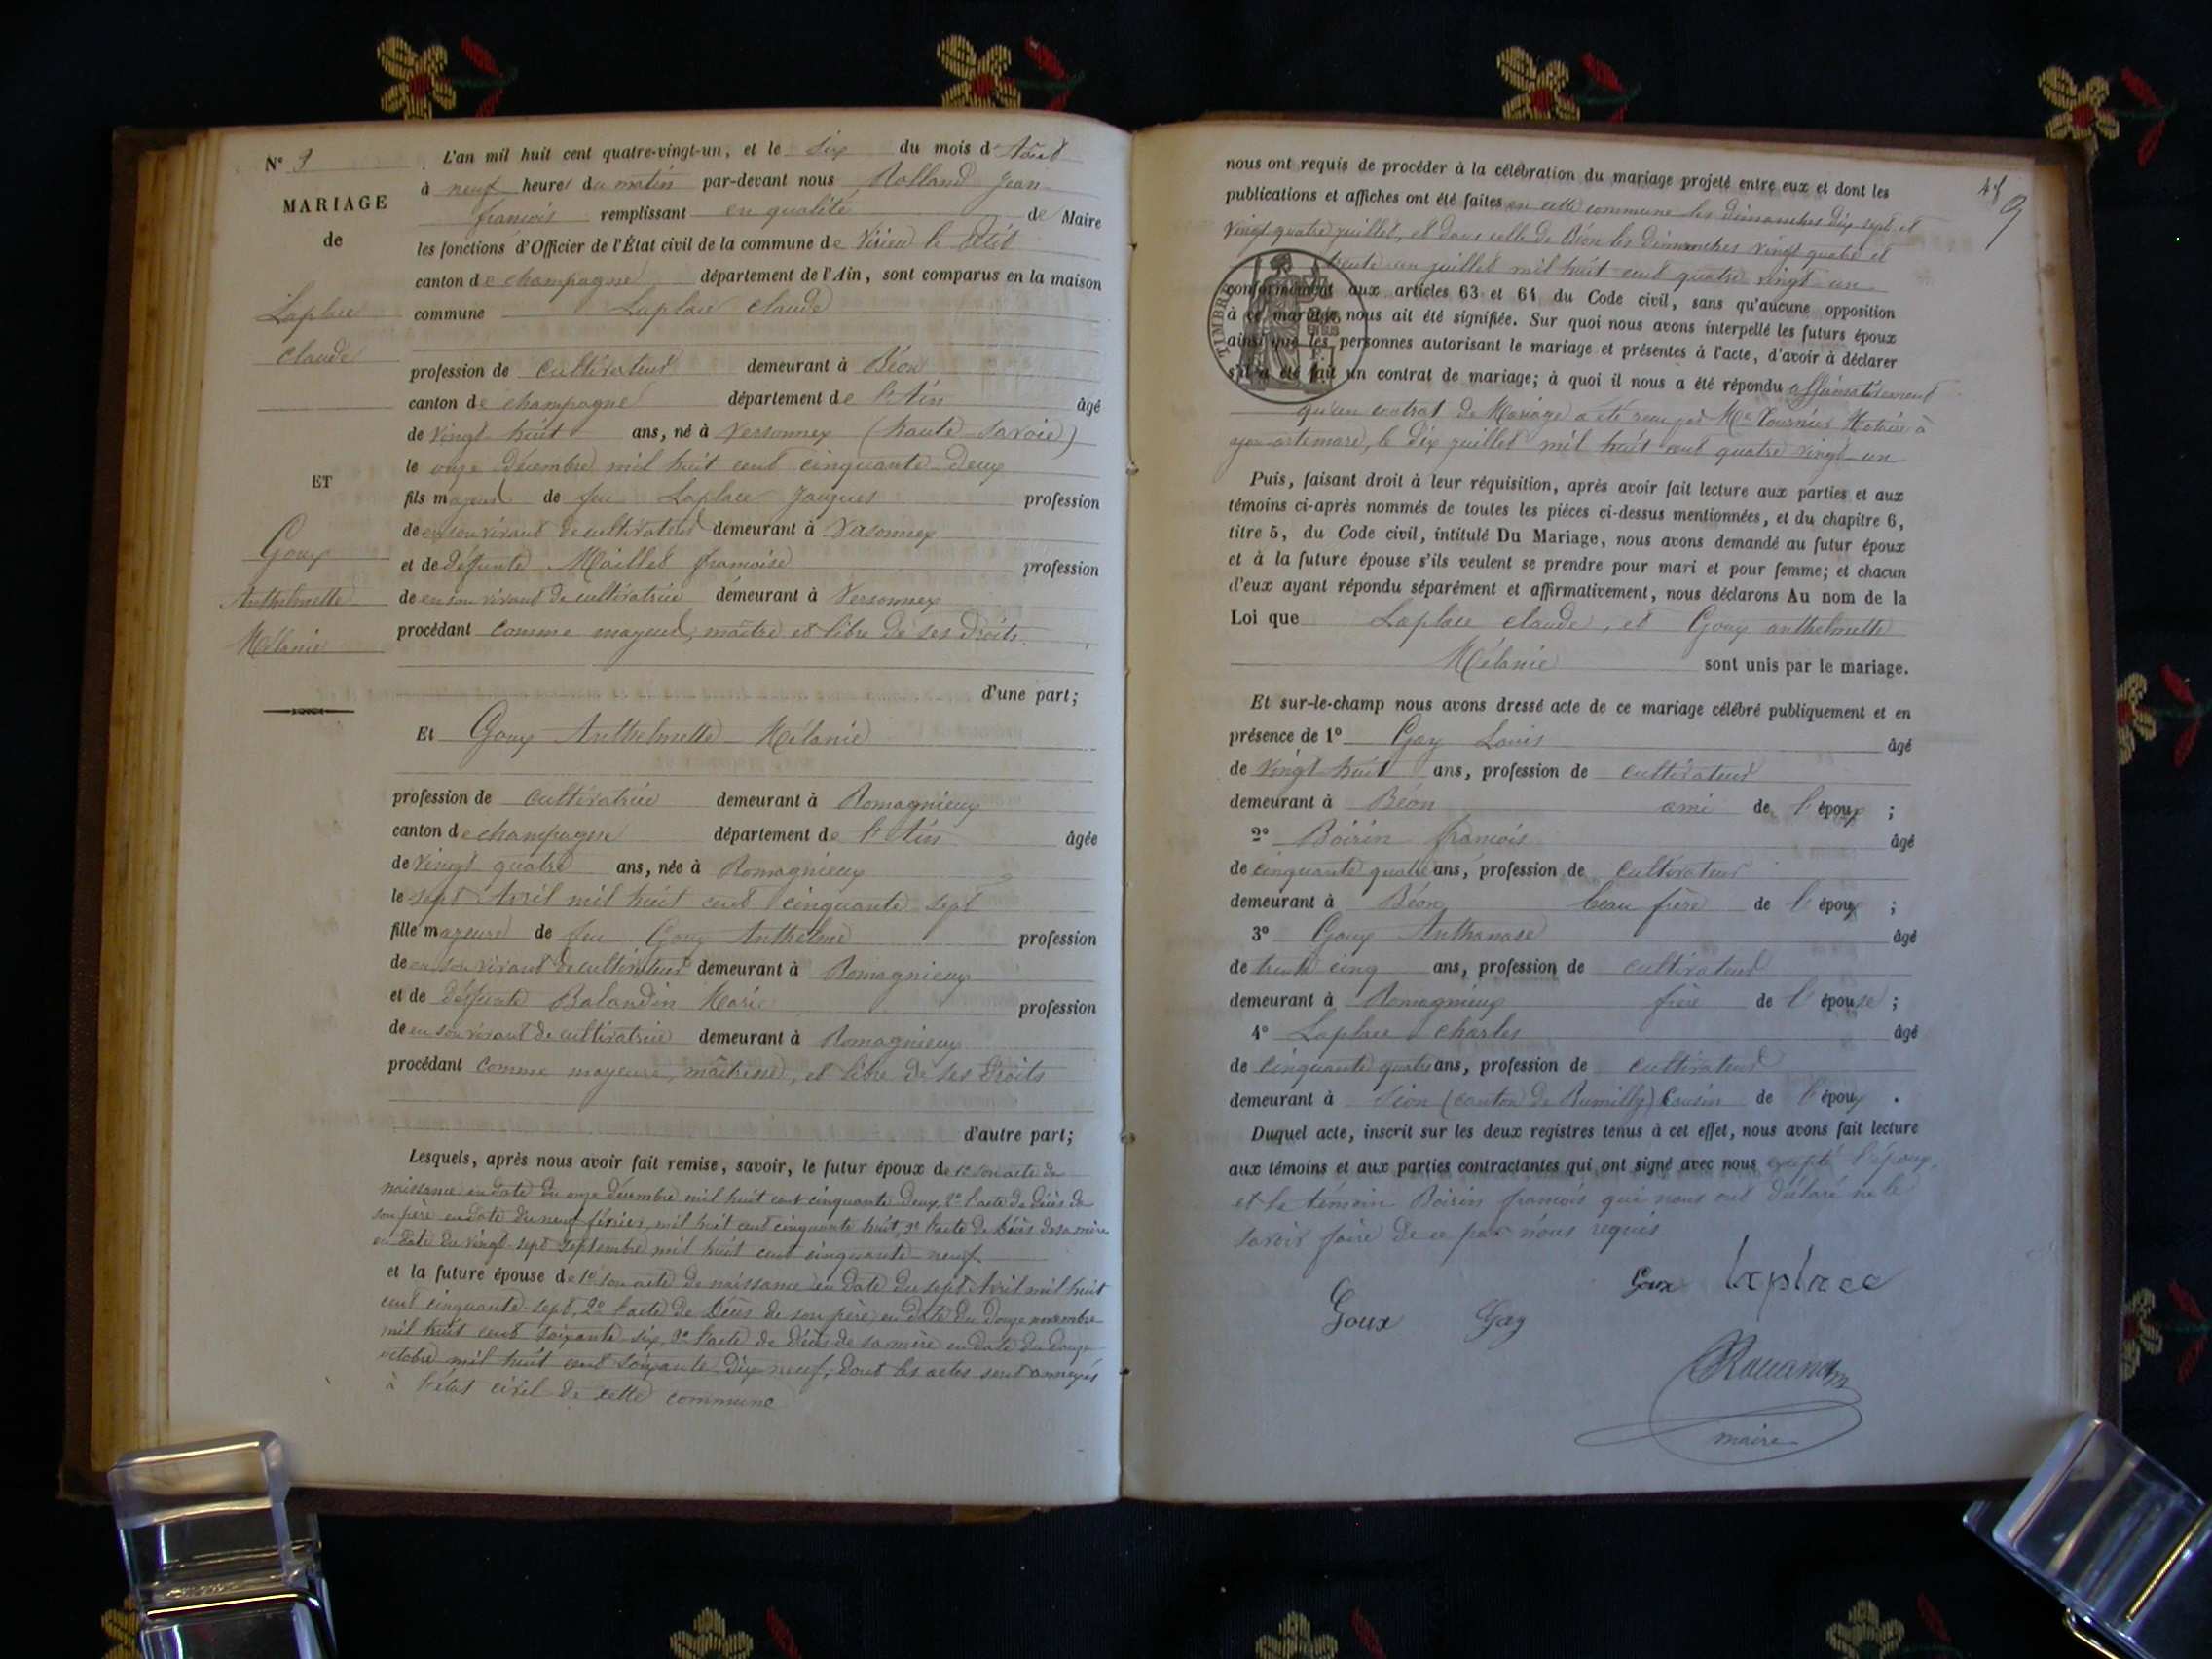 N° 9
MARIAGE
de
Laplace
Claude
ET
Goux
Anthelmette
Mélanie
L'an mil huit cent quatre-vingt-un, et le six du mois d'Août
à neuf heures du matin par-devant nous Rolland Jean
françois remplissant en qualité de Maire
les fonctions d'Officier de l'État civil de la commune de Virieu le Petit
canton de champagne département de l'Ain, sont comparus en la maison
commune Laplace claude
profession de cultivateur demeurant à Béon
canton de champagne département de l'Ain âgé
de vingt huit ans, né à Versonnex (haute Savoie)
le onze décembre mil huit cent cinquante-deux
fils majeur de feu Laplace Jacques profession
de en son vivant de cultivateur demeurant à Versonnex
et de défunte Maillet françoise profession
de en son vivant de cultivatrice demeurant à Versonnex
procédant comme mayeur, maître et libre de ses droits.
d'une part;
Et Goux Anthelmette Mélanie
profession de cultivatrice demeurant à Romagnieux
canton de champagne département de l'Ain âgée
de vingt quatre ans, née à Romagnieux
le sept Avril mil huit cent cinquante sept
fille mayeure de feu Goux Anthelme profession
de en son vivant de cultivateur demeurant à Romagnieux
et de défunte Balandin Marie profession
de en son vivant de cultivatrice demeurant à Romagnieux
procédant comme mayeure, maîtresse, et libre de ses droits
d'autre part;
Lesquels, après nous avoir fait remise, savoir, le futur époux de 1° son acte de
naissance en date du onze décembre mil huit cent cinquante deux, 2° l'acte de décès de
son père en date du neuf février mil huit cent cinquante huit, 3° l'acte de décès de sa mère
en date du vingt-sept septembre mil huit cent cinquante-neuf
et la future épouse de 1° son acte de naissance en date du sept Avril mil huit
cent cinquante-sept, 2° l'acte de décès de son père en date du douze novembre
mil huit cent soixante-six, 3° l'acte de décès de sa mère en date du douze
octobre mil huit cent soixante dix neuf, dont les actes sont annexés
à l'état civil de cette commune
9
nous ont requis de procéder à la célébration du mariage projeté entre eux et dont les
publications et affiches ont été faites en cette commune les dimanches dix-sept et
vingt quatre juillet, et dans celle de Béon les dimanches vingt quatre et
trente un juillet mil huit cent quatre vingt-un
TIMBRE
conformément aux articles 63 et 64 du Code civil, sans qu'aucune opposition
à ce mariage nous ait été signifiée. Sur quoi nous avons interpellé les futurs époux
ainsi que les personnes autorisant le mariage et présentes à l'acte, d'avoir à déclarer
s'il a été fait un contrat de mariage; à quoi il nous a été répondu affirmativement
qu'un contrat de Mariage a été reçu par Me Tournier Notaire à
artemare, le dix juillet mil huit cent quatre vingt-un
Puis, faisant droit à leur réquisition, après avoir fait lecture aux parties et aux
témoins ci-après nommés de toutes les pièces ci-dessus mentionnées, et du chapitre 6,
titre 5, du Code civil, intitulé Du Mariage, nous avons demandé au futur époux
et à la future épouse s'ils veulent se prendre pour mari et pour femme; et chacun
d'eux ayant répondu séparément et affirmativement, nous déclarons Au nom de la
Loi que Laplace claude, et Goux anthelmette
Mélanie sont unis par le mariage.
Et sur-le-champ nous avons dressé acte de ce mariage célébré publiquement et en
présence de 1° Gay Louis âgé
de vingt-huit ans, profession de cultivateur
demeurant à Béon ami de l'époux ;
2° Boisin françois âgé
de cinquante quatre ans, profession de cultivateur
demeurant à Béon beau frère de l'époux ;
3° Goux Anthanase âgé
de trente cinq ans, profession de cultivateur
demeurant à Romagnieux frère de l'épouse ;
4° Laplace charles âgé
de cinquante quatre ans, profession de cultivateur
demeurant à Sion (canton de Rumilly) Cousin de l'époux .
Duquel acte, inscrit sur les deux registres tenus à cet effet, nous avons fait lecture
aux témoins et aux parties contractantes qui ont signé avec nous excepté l'époux,
et le témoin Boisin françois qui nous ont déclaré ne le
savoir faire de ce par nous requis
Goux Laplace
Goux Gay
Rolland
maire